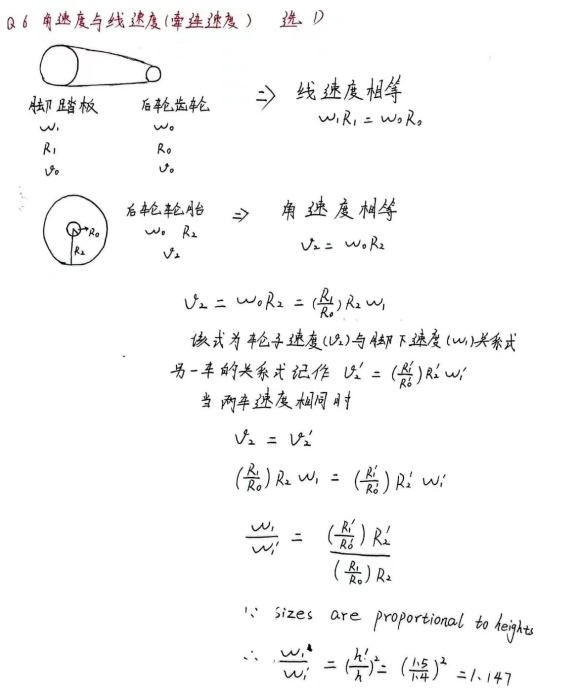 Q6 角速度与线速度(牵连速度) 选 D
脚踏板 后轮齿轮 ⇒ 线速度相等
ω₁ ω₀ ω₁R₁ = ω₀R₀
R₁ R₀
v₀ v₀
后轮轮胎 ⇒ 角速度相等
R₀ ω₀ R₂ v₂ = ω₀R₂
R₂ v₂
v₂ = ω₀R₂ = (R₁/R₀)R₂ω₁
该式为轮子速度(v₂)与脚下速度(ω₁)关系式
另一车的关系式记作 v₂' = (R₁'/R₀')R₂'ω₁'
当两车速度相同时
v₂ = v₂'
(R₁/R₀)R₂ ω₁ = (R₁'/R₀')R₂' ω₁'
ω₁/ω₁' = (R₁'/R₀')R₂' / (R₁/R₀)R₂
∵ sizes are proportional to heights
∴ ω₁/ω₁' = (h'/h)² = (1.5/1.4)² = 1.147